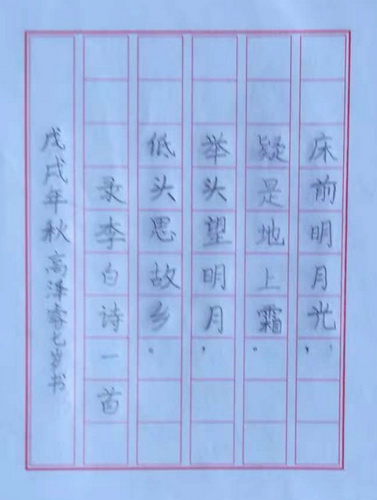 床前明月光，
疑是地上霜。
举头望明月，
低头思故乡。
录李白诗一首
戊戌年秋高泽七岁书